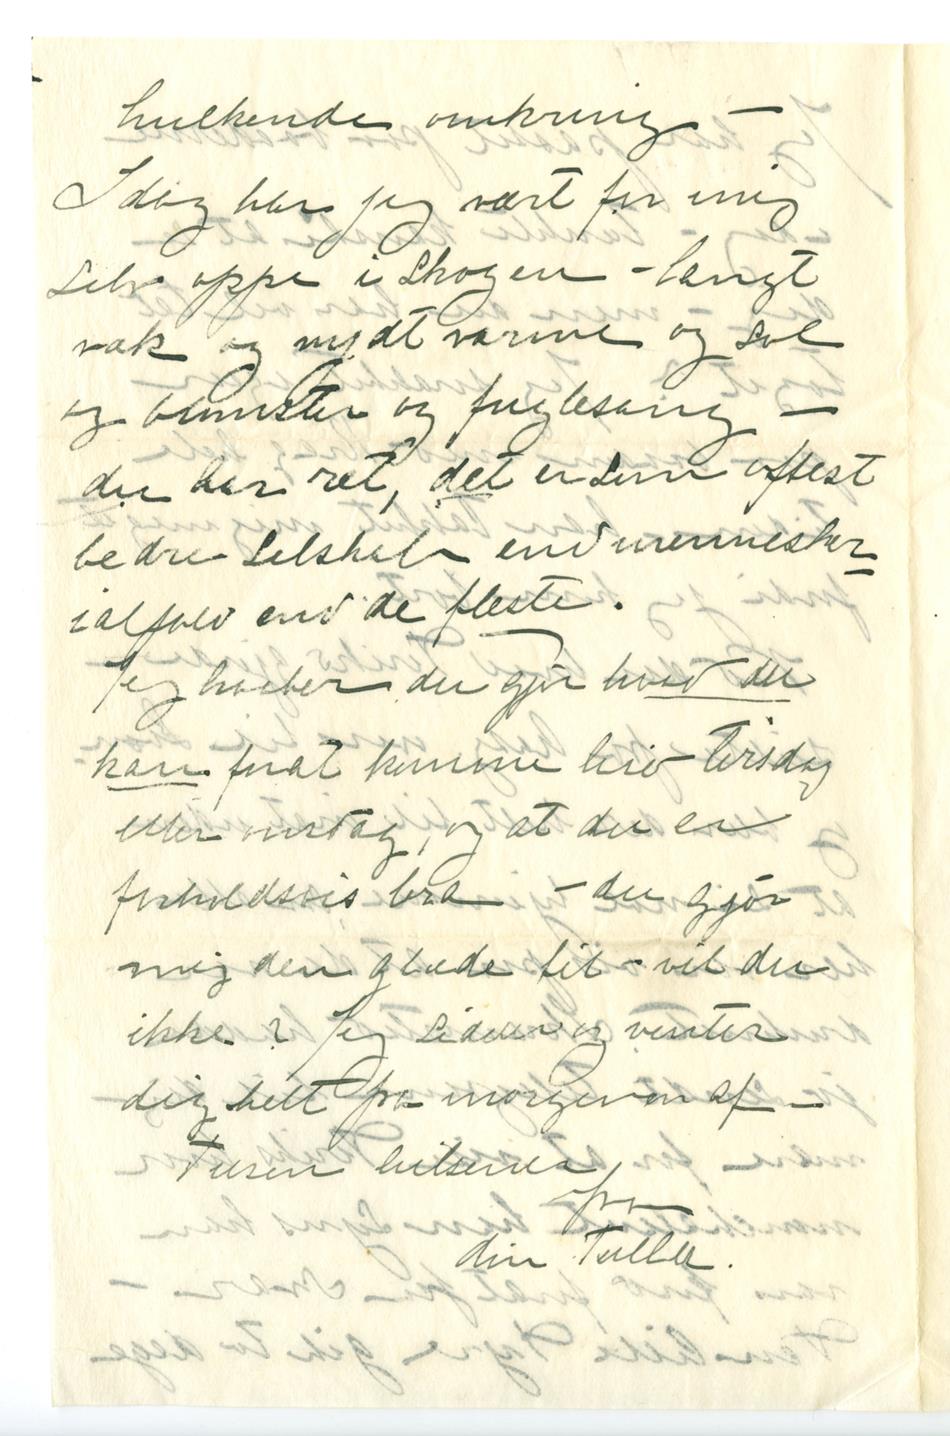 hulkende omkring –
Idag har jeg vært for mig
selv oppe i skogen – langt
væk og nydt varme og sol
og blomster og fuglesang –
du har ret, det er som oftest
bedre selskab end mennesker
ialfald end de fleste.
Jeg haaber du gjør hvad du
kan forat komme hid tirsdag
eller onsdag, og at du er
forholdsvis bra – du gjør
mig den glæde til – vil du
ikke? Jeg sidder og venter
dig helt fra morgenen af –
Tusen hilsener
fra
din Tulla.